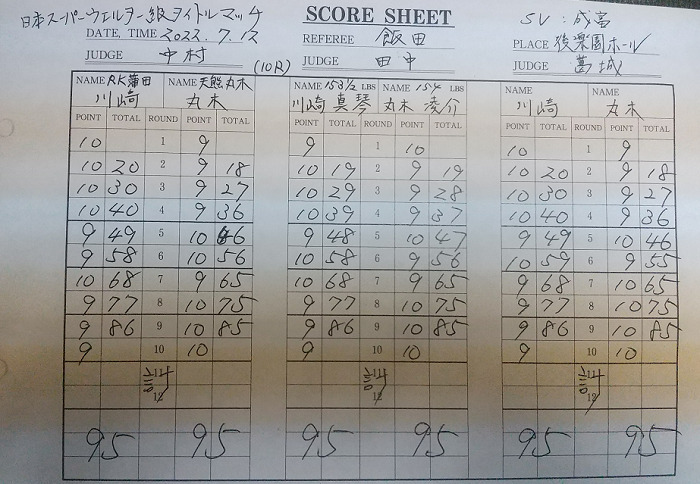 日本スーパーウェルター級タイトルマッチ SCORE SHEET SV:成富
DATE, TIME 2022.7.12 REFEREE 飯田 PLACE 後楽園ホール
JUDGE 中村 (10R) JUDGE 田中 JUDGE 葛城
NAME RK蒲田 NAME 天熊丸木 NAME 153 1/2 LBS NAME 154 LBS NAME NAME
川崎 丸木 川崎 真琴 丸木 凌介 川崎 丸木
POINT TOTAL ROUND POINT TOTAL POINT TOTAL ROUND POINT TOTAL POINT TOTAL ROUND POINT TOTAL
10 1 9 9 1 10 10 1 9
10 20 2 9 18 10 19 2 9 19 10 20 2 9 18
10 30 3 9 27 10 29 3 9 28 10 30 3 9 27
10 40 4 9 36 10 39 4 9 37 10 40 4 9 36
9 49 5 10 46 9 48 5 10 47 9 49 5 10 46
9 58 6 10 56 10 58 6 9 56 10 59 6 9 55
10 68 7 9 65 10 68 7 9 65 9 68 7 10 65
9 77 8 10 75 9 77 8 10 75 9 77 8 10 75
9 86 9 10 85 9 86 9 10 85 9 86 9 10 85
9 10 10 9 10 10 9 10 10
12 12 12
95 95 95 95 95 95